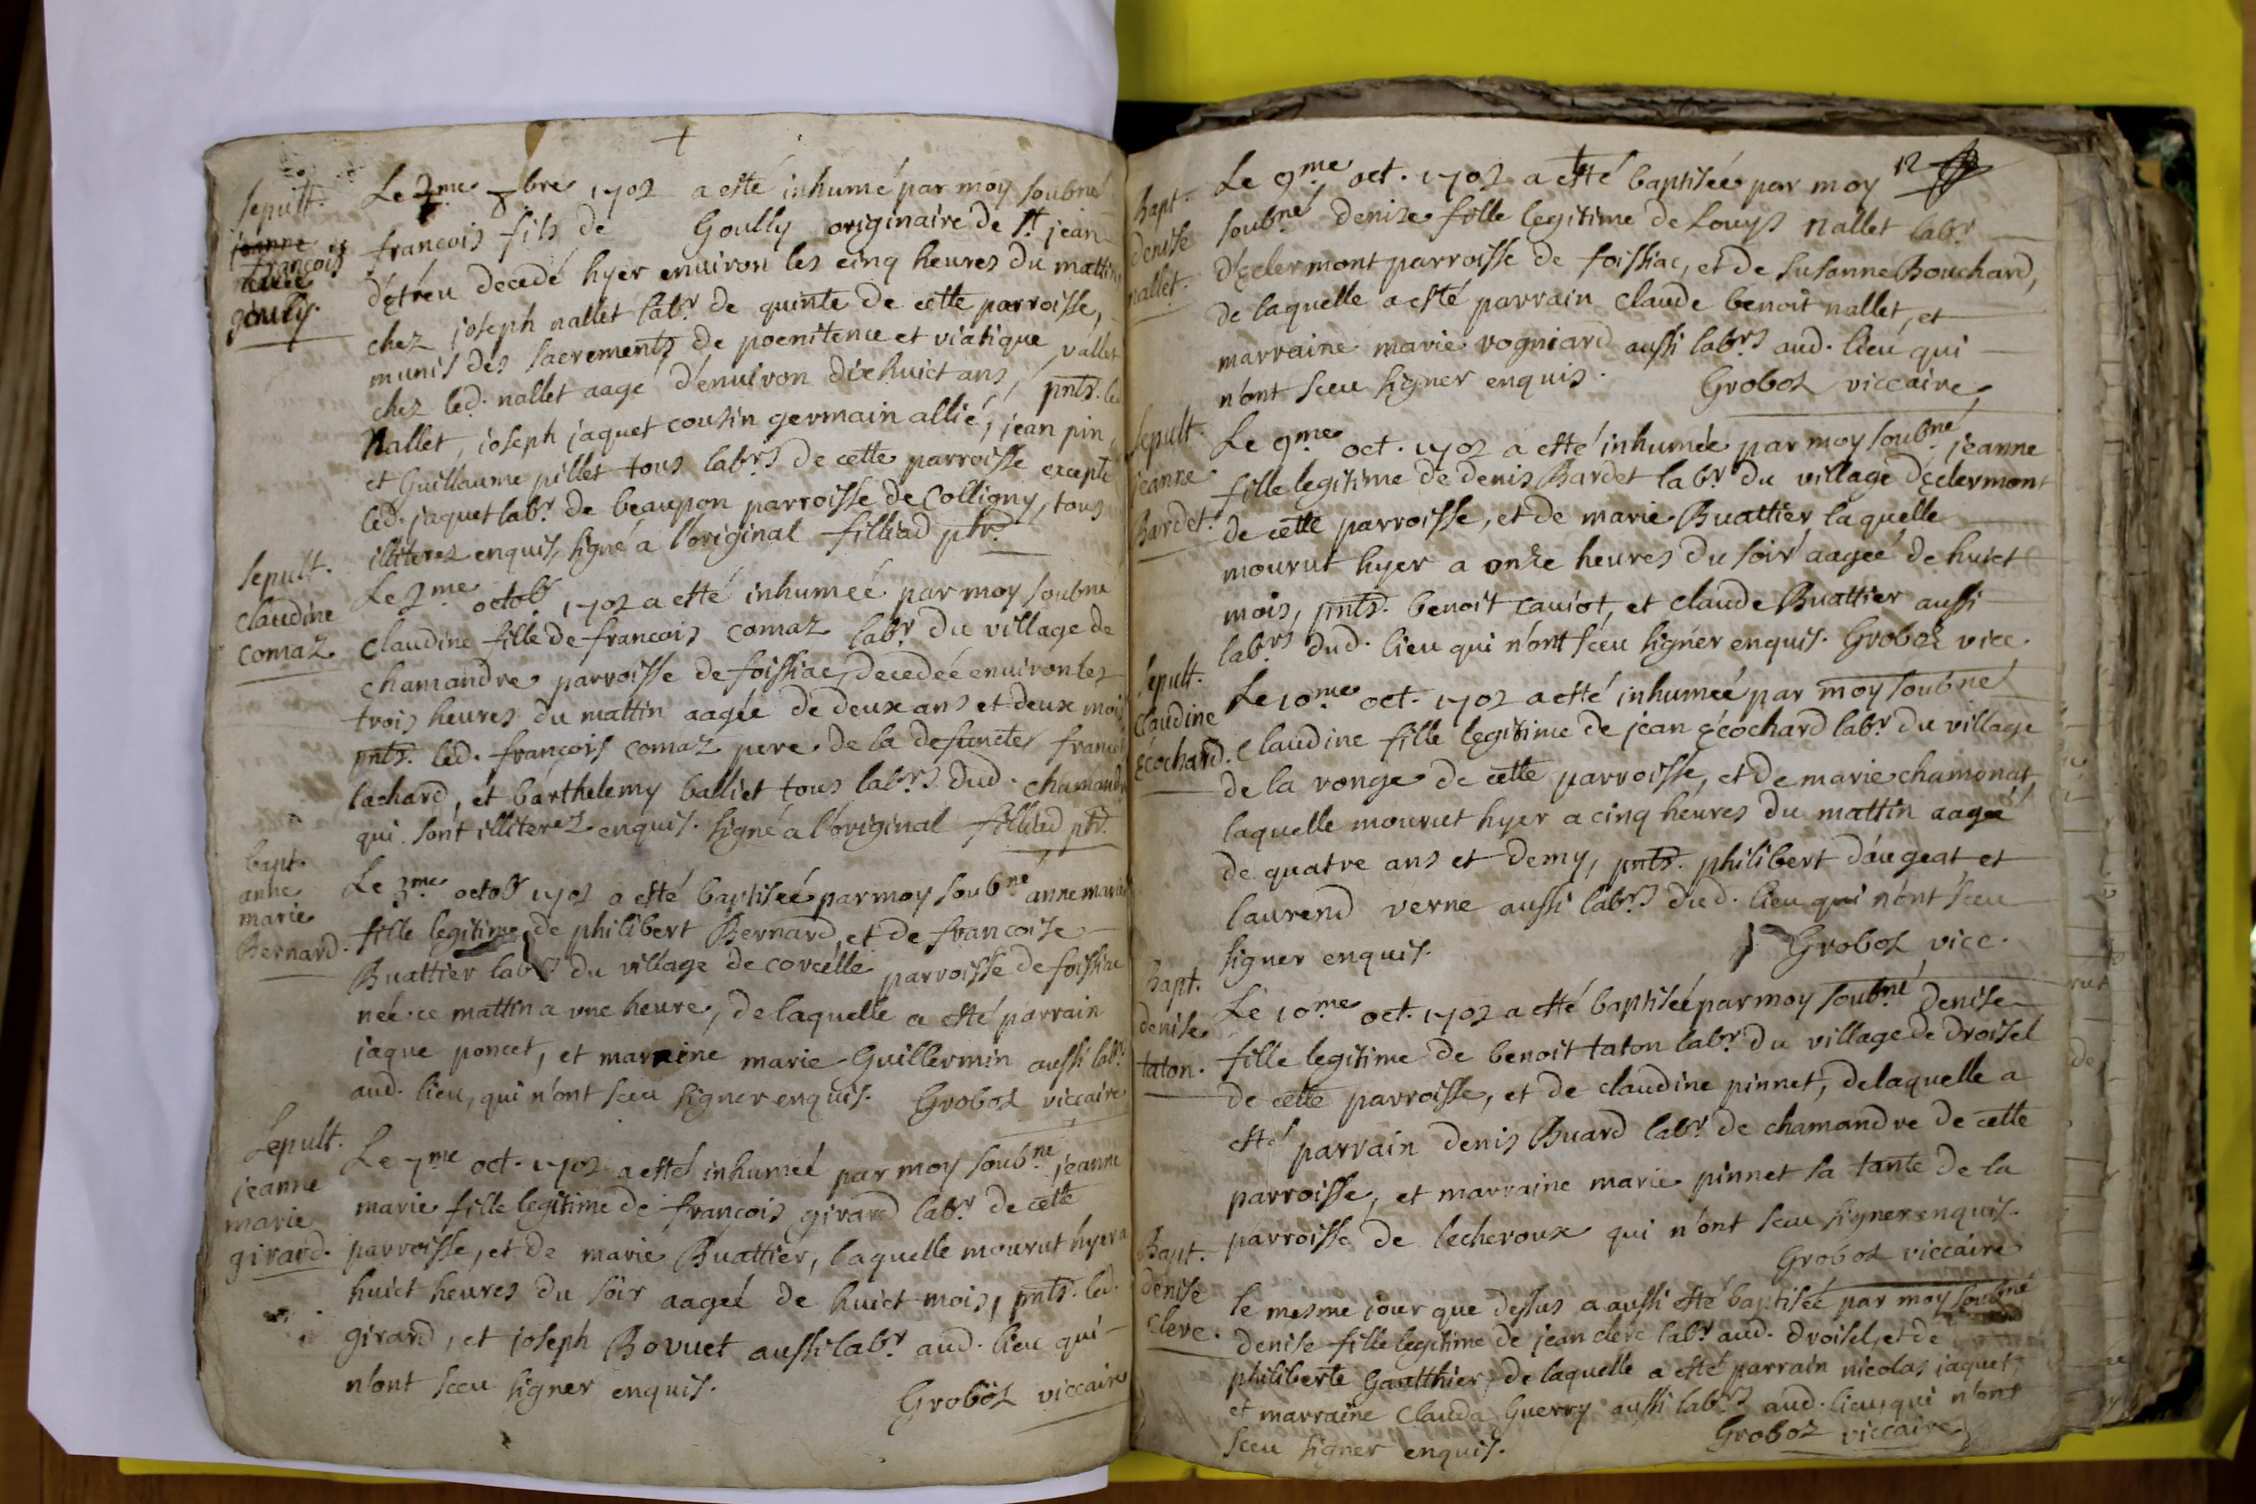 Sepult.
françois
goully.
Le 2.me 8bre 1702 a esté inhumé par moy soubné
francois fils de Goully originaire de St jean
d'étréu decedé hyer enuiron les cinq heures du mattin
chez joseph nallet labr de quinte de cette parroisse,
munis des sacrements de poenitence et viatique, vallet
chez led. nallet aagé d'enuiron dix huict ans, pnts. led
Nallet, joseph jaquet cousin germain allié, jean pin,
et Guillaume pillet tous labrs de cette parroisse excepté
led. jaquet labr. de beaupon parroisse de Colligny, tous
illiterez enquis, signé a l'original filliad ptr.
Sepult.
claudine
comaz
Le 2me octob 1702 a esté inhumeé par moy soubné
claudine fille de francois comaz labr du village de
chamandre parroisse de foissiac, decedée enuiron les
trois heures du mattin aagée de deux ans et deux mois
pnts. led. françois comaz pere de la defuncte, francois
lachard, et barthelemy balliet tous labrs. dud. chamandre
qui sont illiterez enquis. signé a l'original filliad ptr.
bapt.
anne
marie
Bernard.
Le 3.me octob 1702 a esté baptiseé par moy soubné anne marie
fille legitime de philibert Bernard, et de francoise
Buattier labrs du village de corcelle parroisse de foissiac
née ce mattin a une heure, de laquelle a esté parrain
jaque poncet, et marraine marie Guillermin aussi labrs
aud. lieu, qui n'ont sceu signer enquis. Groboz viccaire
Sepult.
jeanne
marie
girard.
Le 7me oct. 1702 a esté inhumeé par moy soubné jeanne
marie fille legitime de francois girard labr. de cette
parroisse, et de marie Buattier, laquelle mourut hyer a
huict heures du soir aageé de huict mois, pnts. led.
girard, et joseph Bovuet aussi labr aud. lieu qui
n'ont sceu signer enquis. Groboz viccaire
12
Bapt.
denise
nallet.
Le 9me oct. 1702 a esté baptisée par moy
soubné denise fille legitime de Louys nallet labr
d'éclermont parroisse de foissiac, et de susanne Bouchard,
de laquelle a esté parrain claude benoit nallet, et
marraine marie vogniard aussi labrs aud. lieu qui
n'ont sceu signer enquis. Groboz viccaire
Sepult.
jeanne
Bardet.
Le 9.me oct. 1702 a esté inhumée par moy soubné jeanne
fille legitime de denis Bardet labr du village d'éclermont
de cette parroisse, et de marie Buattier laquelle
mourut hyer a onze heures du soir aageé de huict
mois, pnts. benoit caviot, et claude Buattier aussi
labrs dud. lieu qui n'ont sceu signer enquis. Groboz vicc.
Sepult.
claudine
écochard.
Le 10.me oct. 1702 a esté inhumeé par moy soubné
Claudine fille legitime de jean écochard labr. du village
de la ronge de cette parroisse, et de marie chamonat,
laquelle mourut hyer a cinq heures du mattin aageé
de quatre ans et demy, pnts. philibert daugeat, et
laurend verne aussi labrs dud. lieu qui n'ont sceu
signer enquis. Groboz vicc.
Bapt.
denise
taton.
Le 10me oct. 1702 a esté baptiseé par moy soubné denise
fille legitime de benoit taton labr. du village de droisel
de cette parroisse, et de claudine pinnet, de laquelle a
esté parrain denis Buard labr de chamandre de cette
parroisse, et marraine marie pinnet sa tante de la
parroisse de lecheroux qui n'ont sceu signer enquis.
Groboz viccaire
Bapt.
denise
clerc.
le mesme jour que dessus a aussi esté baptiseé par moy soubné
denise fille legitime de jean clerc labr. aud. droisel, et de
philiberte gautthier, de laquelle a esté parrain nicolas jaquet,
et marraine Clauda Guerry aussi labrs aud. lieu qui n'ont
sceu signer enquis. Groboz viccaire